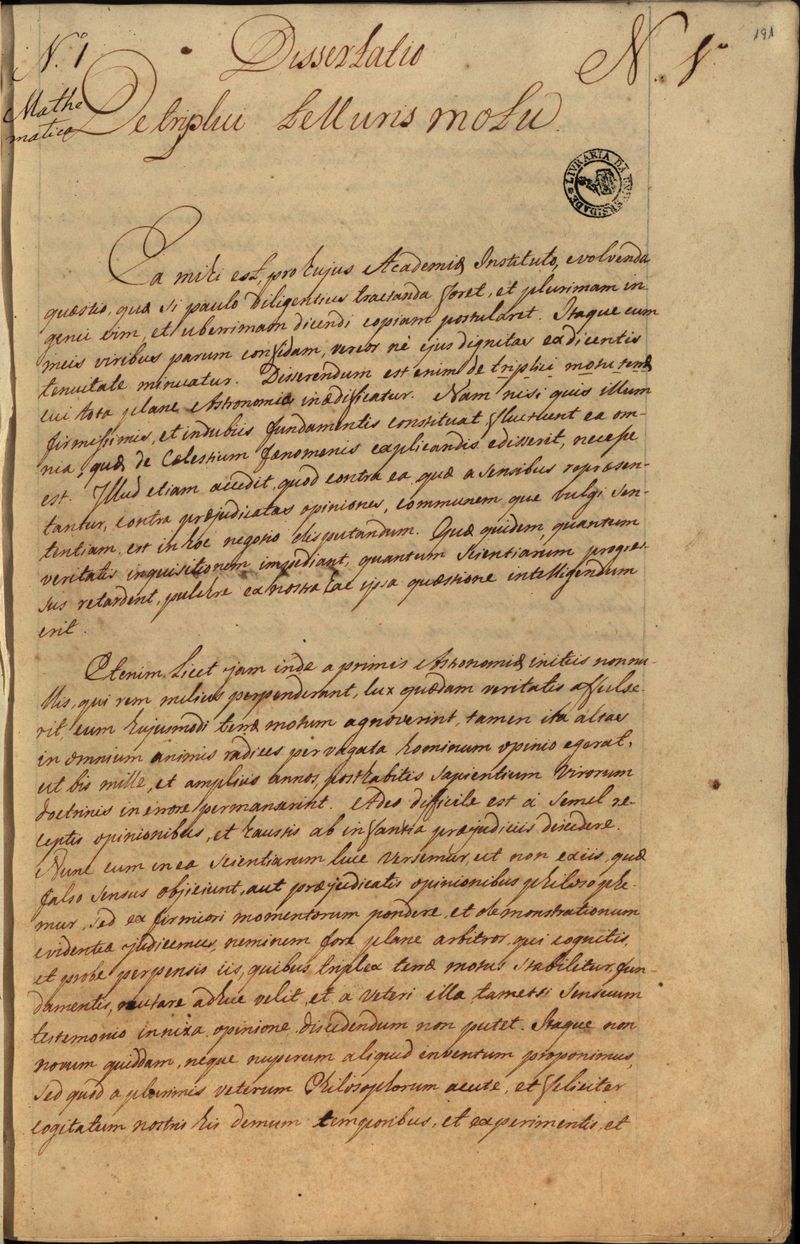 191
N.º 1
Dissertatio
N. 1º
Mathe
matica
De triplici telluris motu.
LIVRARIA DA UNIVERSIDADE
Ea mihi est, pro hujus Academiæ Instituto, evolvenda
quæstio, quæ si paulo diligentius tractanda foret, et plurimam in-
genii vim, et uberrimam dicendi copiam postularet. Itaque cum
meis viribus parum confidam, vereor nè ejus dignitas ex dicentis
tenuitate minuatur. Disserendum est enim de triplici motu terræ
cui tota plane Astronomia inædificatur. Nam nisi quis illum
firmissimis, et indubiis fundamentis constituat fluctuent ea om-
nia, quæ de Cœlestium fænomenis explicandis edisserit, necesse
est. Illud etiam accedit, quod contra ea quæ a sensibus repræsen-
tantur, contra præjudicatas opiniones, communem que vulgi sen-
tentiam, est in hoc negotio disputandum. Quæ quidem, quantum
veritatis inquisitionem impediant, quantum Scientiarum progres-
sus retardent, pulchre ex nostra hac ipsa quæstione intelligendum
erit.
Etenim licet jam inde a primis Astronomiæ initiis nonnu-
llis, qui rem milius perpenderant, lux quædam veritatis affulse-
rit cum hujusmodi terræ motum agnoverint, tamen ita altas
in omnium animis radices pervagata hominum opinio egerat,
ut bis mille, et amplius annos, posthabitis sapientium virorum
doctrinis in errore permanserint. Adeo difficile est à semel re-
ceptis opinionibus, et haustis ab infantia præjudiciis discedere.
Nunc cum in ea scientiarum luce versemur, ut non ex iis, quæ
falso sensus objiciunt, aut præjudicatis opinionibus philosophe-
mur, sed ex firmiori momentorum pondere, et demonstrationum
evidentia judicemus, neminem fore plane arbitror, qui cognitis,
et probe perpensis iis, quibus triplex terræ motus stabilitur, fun-
damentis, mutare adhuc velit, et a veteri illa tametsi sensuum
testemonio innixa opinione discedendum non putet. Itaque non
novum quiddam, neque nuperum aliquid inventum proponimus,
sed quod a plurimis veterum Philosophorum acute, et feliciter
cogitatum nostris his demum temporibus, et experimentis, et